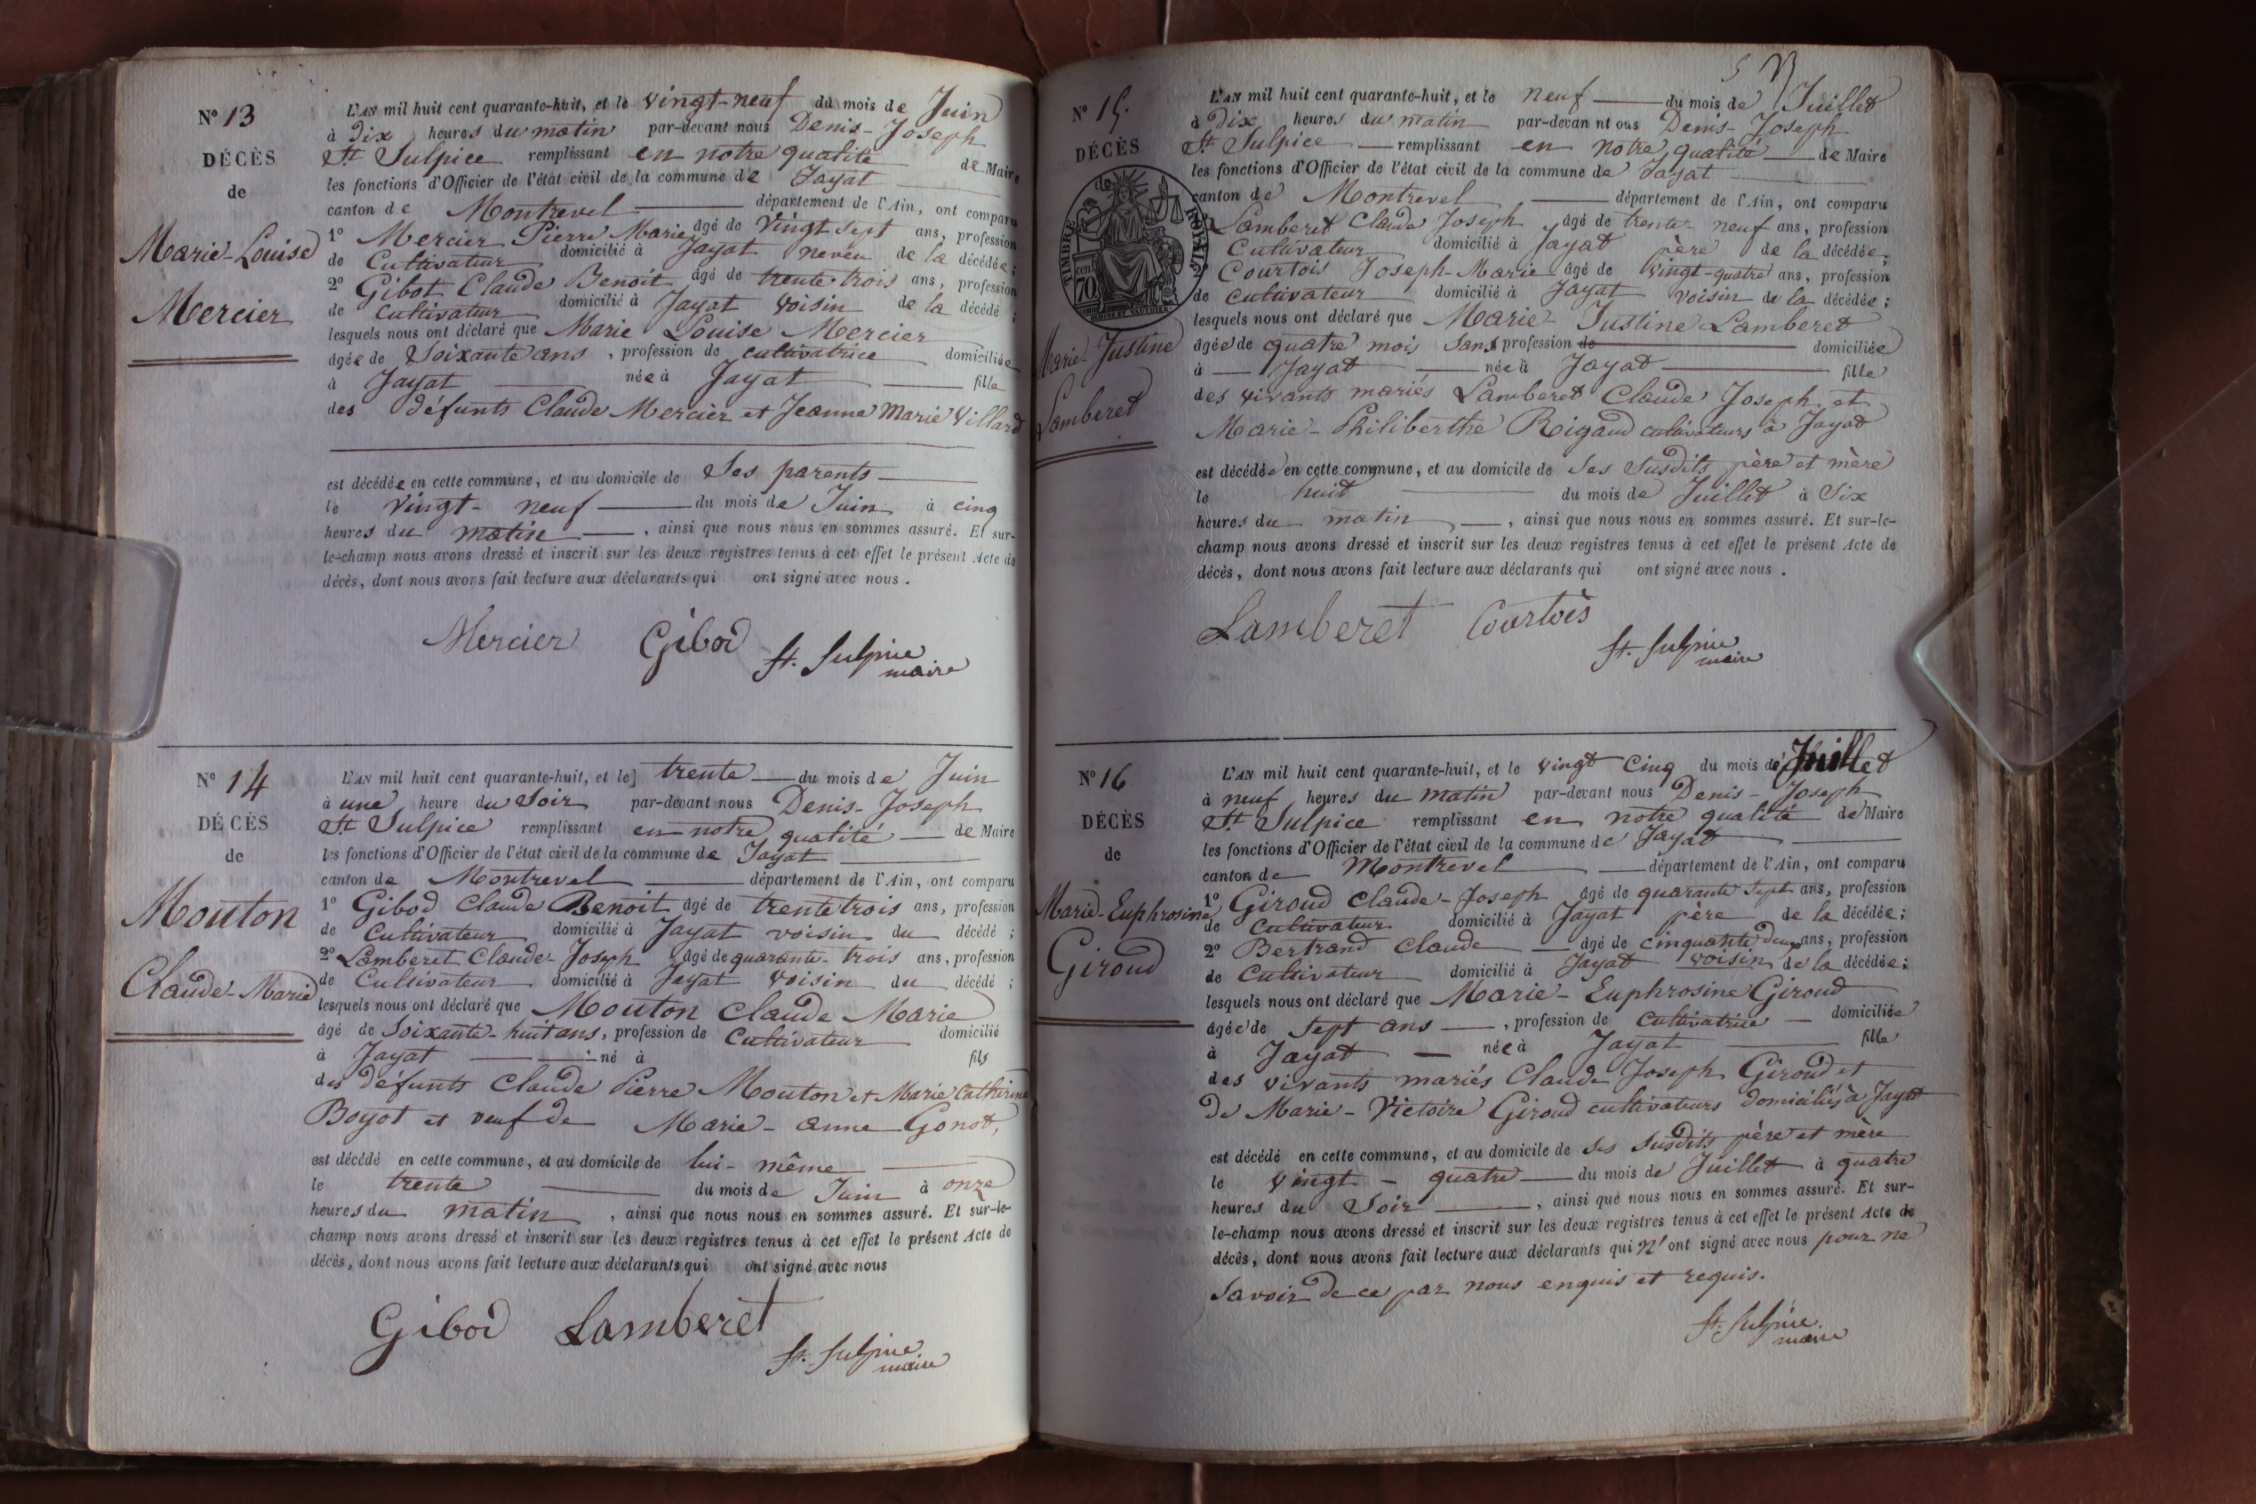 N° 13
DÉCÈS
de
Marie-Louise
Mercier
L'AN mil huit cent quarante-huit, et le vingt-neuf du mois de Juin
à Dix heures du matin par-devant nous Denis-Joseph
St Sulpice remplissant en notre qualité de Maire
les fonctions d'Officier de l'état civil de la commune de Jayat
canton de Montrevel département de l'Ain, ont comparu
1° Mercier Pierre Marie âgé de vingt sept ans, profession
de Cultivateur domicilié à Jayat neveu de la décédée;
2° Gibot Claude Benoit âgé de trente trois ans, profession
de Cultivateur domicilié à Jayat voisin de la décédé;
lesquels nous ont déclaré que Marie Louise Mercier
âgée de Soixante ans, profession de cultivatrice domiciliée
à Jayat née à Jayat fille
des défunts Claude Mercier et Jeanne Marie Villard
est décédée en cette commune, et au domicile de Ses parents
le vingt-neuf du mois de Juin à cinq
heures du matin, ainsi que nous nous en sommes assuré. Et sur-
le-champ nous avons dressé et inscrit sur les deux registres tenus à cet effet le présent Acte de
décès, dont nous avons fait lecture aux déclarants qui ont signé avec nous.
Mercier Gibod St. Sulpice
maire
N° 14
DÉCÈS
de
Mouton
Claude-Marie
L'AN mil huit cent quarante-huit, et le] trente du mois de Juin
à une heure du Soir par-devant nous Denis-Joseph
St Sulpice remplissant en notre qualité de Maire
les fonctions d'Officier de l'état civil de la commune de Jayat
canton de Montrevel département de l'Ain, ont comparu
1° Gibod Claude Benoit âgé de trente trois ans, profession
de Cultivateur domicilié à Jayat voisin du décédé;
2° Lamberet Claude-Joseph âgé de quarante-trois ans, profession
de Cultivateur domicilié à Jayat voisin du décédé;
lesquels nous ont déclaré que Mouton Claude Marie
âgé de Soixante-huit ans, profession de Cultivateur domicilié
à Jayat né à fils
des défunts Claude Pierre Mouton et Marie Catherine
Boyot et veuf de Marie-anne Gonod,
est décédé en cette commune, et au domicile de lui-même
le trente du mois de Juin à onze
heures du matin, ainsi que nous nous en sommes assuré. Et sur-le-
champ nous avons dressé et inscrit sur les deux registres tenus à cet effet le présent Acte de
décès, dont nous avons fait lecture aux déclarants qui ont signé avec nous
Gibod Lamberet
St. Sulpice
maire
N° 15.
DÉCÈS
de
TIMBRE ROYAL
70
Marie-Justine
Lamberet
L'AN mil huit cent quarante-huit, et le neuf du mois de Juillet
à Dix heures du matin par-devan nt ous Denis-Joseph
St Sulpice remplissant en notre qualité de Maire
les fonctions d'Officier de l'état civil de la commune de Jayat
canton de Montrevel département de l'Ain, ont comparu
Lamberet Claude Joseph âgé de trente-neuf ans, profession
Cultivateur domicilié à Jayat père de la décédée;
Courtois Joseph-Marie âgé de vingt-quatre ans, profession
de cultivateur domicilié à Jayat voisin de la décédée;
lesquels nous ont déclaré que Marie-Justine Lamberet
âgée de quatre mois Sans profession de domiciliée
à Jayat née à Jayat fille
des vivants mariés Lamberet Claude Joseph et
Marie-Philiberthe Rigaud cultivateurs à Jayat
est décédée en cette commune, et au domicile de Ses Susdits père et mère
le huit du mois de Juillet à Six
heures du matin, ainsi que nous nous en sommes assuré. Et sur-le-
champ nous avons dressé et inscrit sur les deux registres tenus à cet effet le présent Acte de
décès, dont nous avons fait lecture aux déclarants qui ont signé avec nous.
Lamberet Courtois
St. Sulpice
maire
N° 16
DÉCÈS
de
Marie-Euphrosine
Giroud
L'AN mil huit cent quarante-huit, et le vingt cinq du mois de Juillet
à neuf heures du matin par-devant nous Denis-Joseph
St Sulpice remplissant en notre qualité de Maire
les fonctions d'Officier de l'état civil de la commune de Jayat
canton de Montrevel département de l'Ain, ont comparu
1° Giroud Claude-Joseph âgé de quarante sept ans, profession
de Cultivateur domicilié à Jayat père de la décédée;
2° Bertrand Claude âgé de cinquante deux ans, profession
de Cultivateur domicilié à Jayat voisin de la décédée;
lesquels nous ont déclaré que Marie-Euphrosine Giroud
âgée de sept ans, profession de cultivatrice domiciliée
à Jayat née à Jayat fille
des vivants mariés Claude Joseph Giroud et
de Marie-Victoire Giroud cultivateurs domiciliés à Jayat
est décédé en cette commune, et au domicile de ses susdits père et mère
le vingt-quatre du mois de Juillet à quatre
heures du Soir, ainsi que nous nous en sommes assuré. Et sur-
le-champ nous avons dressé et inscrit sur les deux registres tenus à cet effet le présent Acte de
décès, dont nous avons fait lecture aux déclarants qui n'ont signé avec nous pour ne
Savoir de ce par nous enquis et requis.
St. Sulpice
maire